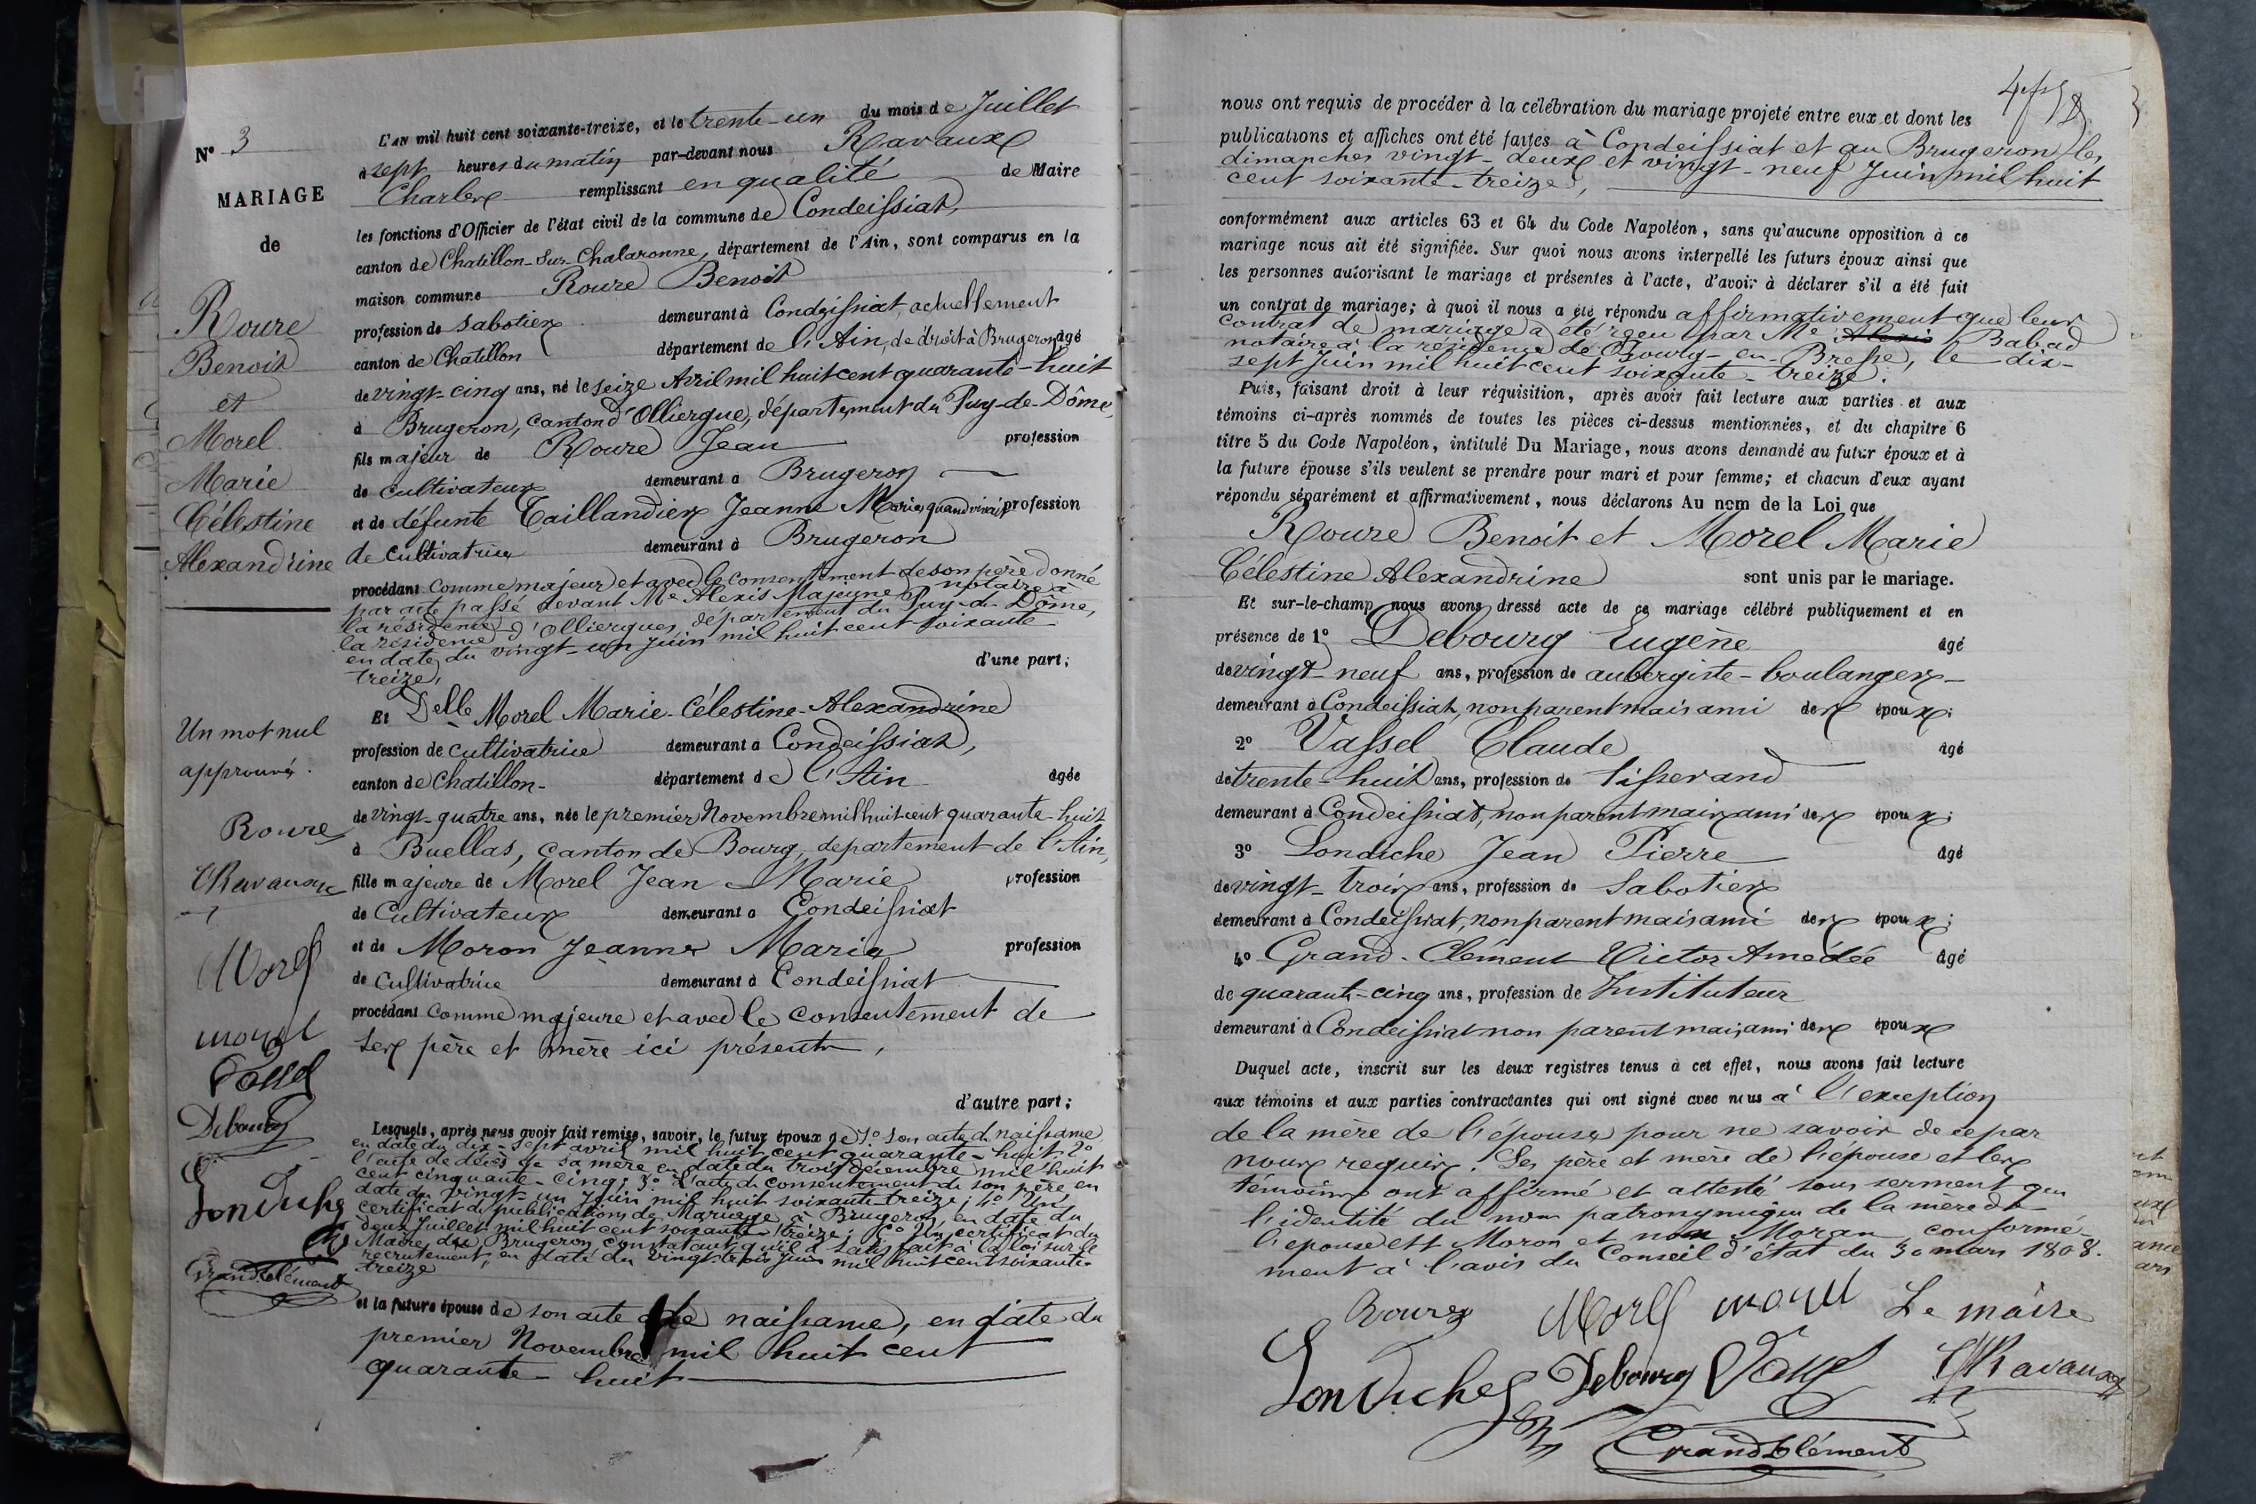 N° 3
MARIAGE
de
Roure
Benoit
et
Morel
Marie
Célestine
Alexandrine
Un mot nul
approuvé.
Roure
CRavaux
Morel
morel
Vassel
Debourg
Londiche
Grandclément
L'AN mil huit cent soixante-treize, et le trente-un du mois de Juillet
à sept heures du matin par-devant nous Ravaux
Charles remplissant en qualité de Maire
les fonctions d'Officier de l'état civil de la commune de Condeissiat,
canton de Chatillon-sur-Chalaronne, département de l'Ain, sont comparus en la
maison commune Roure Benoit
profession de sabotier demeurant à Condeissiat, actuellement
canton de Chatillon département de l'Ain, de droit à Brugeron âgé
de vingt-cinq ans, né le seize Avril mil huit cent quarante-huit
à Brugeron, canton d'Ollierque, département du Puy-de-Dôme,
fils majeur de Roure Jean profession
de cultivateur demeurant à Brugeron
et de défunte Taillandier Jeanne Marie, quand vivait profession
de cultivatrice demeurant à Brugeron
procédant comme majeur et avec le consentement de son père donné
par acte passé devant Me Alexis Majeune notaire à
la résidence d'Ollierques, département du Puy-de-Dôme,
la résidence
en date du vingt-un juin mil huit cent soixante
treize, d'une part;
Et Delle Morel Marie-Célestine-Alexandrine
profession de cultivatrice demeurant à Condeissiat,
canton de Chatillon- département de l'Ain âgée
de vingt-quatre ans, née le premier Novembre mil huit cent quarante-huit
à Buellas, canton de Bourg, département de l'Ain,
fille majeure de Morel Jean-Marie profession
de Cultivateur demeurant à Condeissiat
et de Moron Jeanne Marie profession
de Cultivatrice demeurant à Condeissiat
procédant comme majeure et avec le consentement de
ses père et mère ici présents,
d'autre part;
Lesquels, après nous avoir fait remise, savoir, le futur époux de 1° son acte de naissance
en date du dix-sept avril mil huit cent quarante-huit; 2°
l'acte de décès de sa mère en date du trois décembre mil huit
cent cinquante-cinq; 3° l'acte de consentement de son père, en
date du vingt-un Juin mil huit soixante treize; 4° Un
certificat de publications de Mariage à Brugeron, en date du
deux Juillet mil huit cent soixante treize; 5° Un certificat du
Maire de Brugeron constatant qu'il a satisfait à la loi sur le
recrutement, en date du vingt Juin mil huit cent soixante-
treize
et la future épouse de son acte de naissance, en date du
premier Novembre mil huit cent
quarante-huit
nous ont requis de procéder à la célébration du mariage projeté entre eux et dont les
publications et affiches ont été faites à Condeissiat et au Brugeron les
dimanches vingt-deux et vingt-neuf Juin mil huit
cent soixante-treize,
conformément aux articles 63 et 64 du Code Napoléon, sans qu'aucune opposition à ce
mariage nous ait été signifiée. Sur quoi nous avons interpellé les futurs époux ainsi que
les personnes autorisant le mariage et présentes à l'acte, d'avoir à déclarer s'il a été fait
un contrat de mariage; à quoi il nous a été répondu affirmativement que leur
contrat de mariage a été reçu par Me Alexis Babad
notaire à la résidence de Bourg-en-Bresse, le dix-
sept Juin mil huit cent soixante-treize.
Puis, faisant droit à leur réquisition, après avoir fait lecture aux parties et aux
témoins ci-après nommés de toutes les pièces ci-dessus mentionnées, et du chapitre 6
titre 5 du Code Napoléon, intitulé Du Mariage, nous avons demandé au futur époux et à
la future épouse s'ils veulent se prendre pour mari et pour femme; et chacun d'eux ayant
répondu séparément et affirmativement, nous déclarons Au nom de la Loi que
Roure Benoit et Morel Marie
Célestine Alexandrine sont unis par le mariage.
Et sur-le-champ nous avons dressé acte de ce mariage célébré publiquement et en
présence de 1° Debourg Eugène âgé
de vingt-neuf ans, profession de aubergiste-boulanger-
demeurant à Condeissiat, non parent mais ami des époux;
2° Vassel Claude âgé
de trente-huit ans, profession de tisserand
demeurant à Condeissiat, non parent mais ami des époux;
3° Londiche Jean Pierre âgé
de vingt-trois ans, profession de Sabotier
demeurant à Condeissiat, non parent mais ami des époux;
4° Grand-Clément Victor Amédée âgé
de quarante-cinq ans, profession de Instituteur
demeurant à Condeissiat non parent mais ami des époux
Duquel acte, inscrit sur les deux registres tenus à cet effet, nous avons fait lecture
aux témoins et aux parties contractantes qui ont signé avec nous à l'exception
de la mère de l'épouse pour ne savoir de ce par
nous requise. Les père et mère de l'épouse et les
témoins ont affirmé et attesté sous serment que
l'identité du nom patronymique de la mère de
l'épouse est Moron et non Moran, conformé-
ment à l'avis du Conseil d'état du 30 mars 1808.
Roure Morel morel Le maire
Londiche Debourg Vassel CRavaux
Grandclément